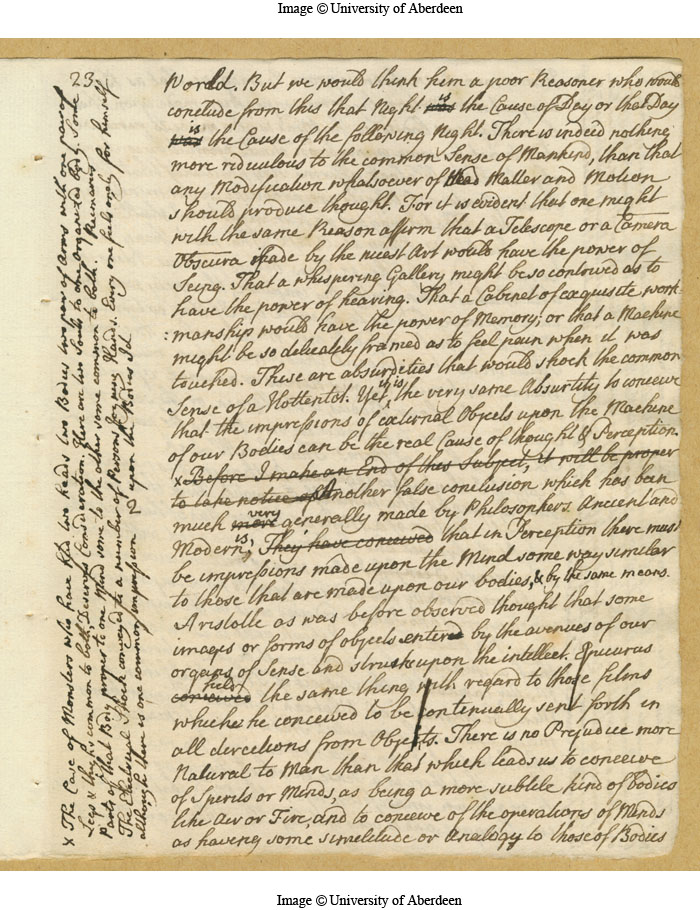 Image © University of Aberdeen
23
World. But we would think him a poor Reasoner who would
conclude from this that Night was is the Cause of Day or that Day
was is the Cause of the following Night. There is indeed nothing
more ridiculous to the common Sense of Mankind, than that
any Modification whatsoever of Dead Matter and Motion
should produce thought. For it is evident that one might
with the same Reason affirm that a Telescope or a Camera
Obscura made by the nicest Art would have the power of
Seing. That a whispering Gallery might be so contrived as to
have the power of hearing. That a Cabinet of exquisite work
:manship would have the power of Memory; or that a Machine
might be so delicately framed as to feel pain when it was
touched. These are absurdities that would shock the common
Sense of a Hottentot. Yet it is the very same Absurtity to conceive
that the impressions of external Objects upon the Machine
of our Bodies can be the real Cause of thought & Perception.
x Before I make an End of this Subject, it will be proper
to take notice of Another false conclusion which has been
much more very generally made by Philosophers Ancient and
Modern is; They have conceived that in Perception there must
be impressions made upon the Mind some way similar
to those that are made upon our bodies, & by the same means.
Aristotle as was before observed thought that some
images or forms of objects entered by the avenues of our
organs of Sense and struke upon the intellect. Epicurus
conceived held the same thing with regard to those films
which he conceived to be continually sent forth in
all derections from Objects. There is no Prejudice more
Natural to Man than that which leads us to conceive
of Spirits or Minds, as being a more subtile kind of bodies
like Air or Fire, and to conceive of the operations of Minds
as having some similitude or Analogy to those of Bodies
x The Case of Monsters who have had two heads two Bodies two pair of Arms with one pair of
Legs & thighs common to both, Deserves Consideration. There are two Souls to one organized Body. Some
Parts of that Body proper to one Mind some to the other some common to both. Reimarus
The Electrical Shock conveyed to a number of Persons joyning Hands. Every one feels onely for himself
although there is one common impression upon the Bodies
Image © University of Aberdeen